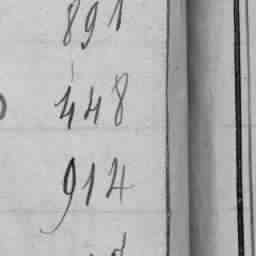 891
448
914